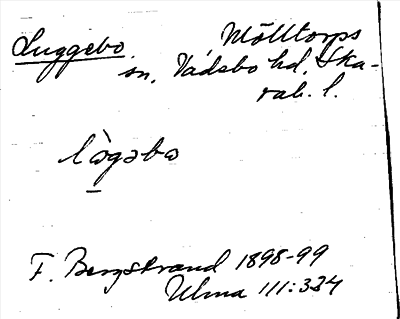 Luggebo. Mölltorps
sn, Vadsbo hd, Ska-
rab. l.
lògəbo
F. Bergstrand 1898-99
Ulma 111:334